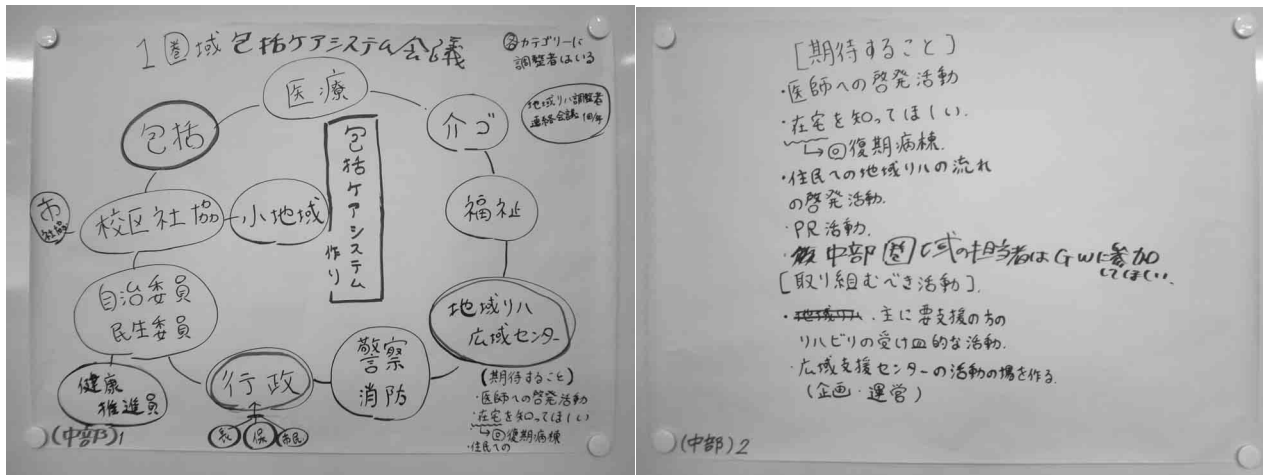 1圏域包括ケアシステム会議
各カテゴリーに
調整者はいる
医療
地域リハ調整者
連絡会議
包括
介ゴ
包括ケアシステム
作り
市
社協
校区社協
小地域
福祉
自治委員
民生委員
地域リハ
広域センター
警察
消防
行政
健康
推進員
保
市民
(期待すること)
・医師への啓発活動
・在宅を知ってほしい
↳回復期病棟
・住民への
(中部)1
[期待すること]
・医師への啓発活動
・在宅を知ってほしい.
↳回復期病棟.
・住民への地域リハの流れ
の啓発活動.
・PR活動.
・中部圏域の担当者はGWに参加
してほしい.
[取り組むべき活動].
・地域リハ.主に要支援の方の
リハビリの受け皿的な活動.
・広域支援センターの活動の場を作る.
(企画・運営)
(中部)2